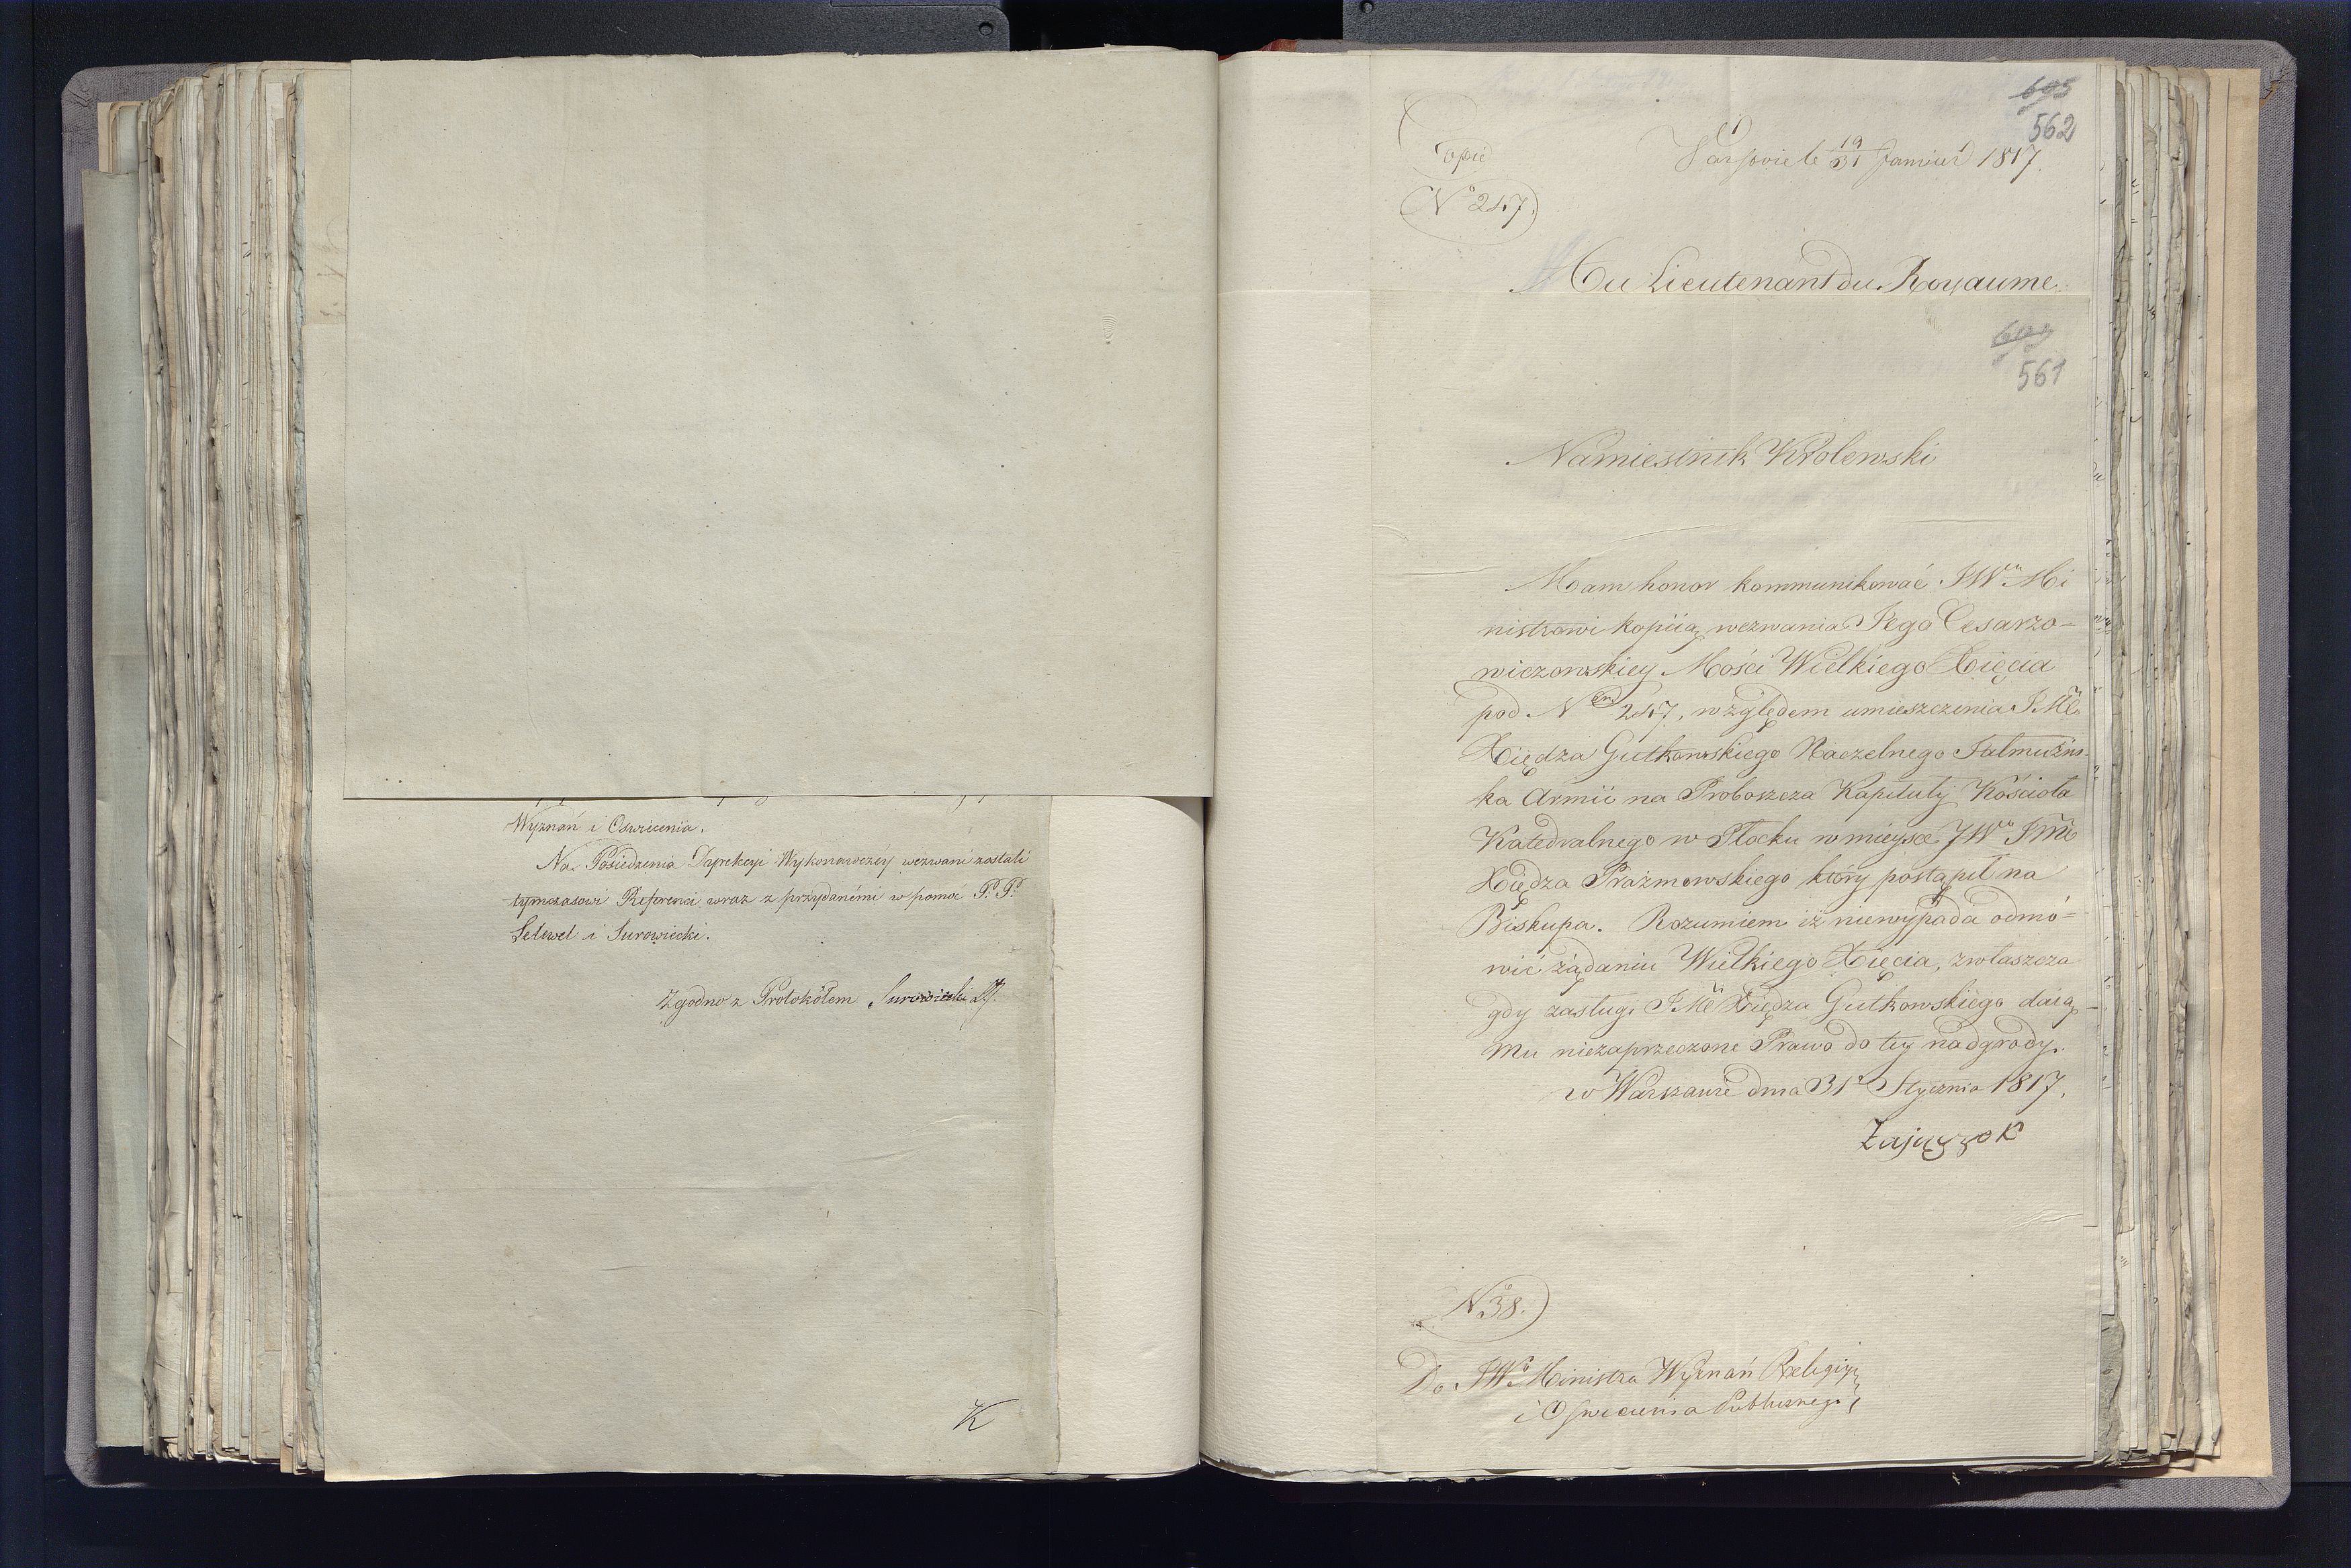 Wyznań i Oswiecenia.
Na Posiedzenia Dyrekcyi Wykonawczéy wezwani zostali
tymczasowi Referenci wraz z przydanémi w pomoc P. P.
Lelewel i Surowiecki.
Zgodno z Protokółem Surowiecki
K
695
562
Copie
Varsovie le 19/31 Janvier 1817.
N° 247.
Au Lieutenant du Royaume.
561
Namiestnik Królewski
Mam honor kommunikować JWu Mi
nistrowi kopiią wezwania Jego Cesarzo-
wiczowskiey Mości Wielkiego Xięcia
pod Nem 247, względem umieszczenia JMci
Xiędza Gutkowskiego Naczelnego Jałmużni-
ka Armii na Proboszcza Kapituły Kościoła
Katedralnego w Płocku w mieysce JWo JMci
Xiędza Prażmowskiego który postąpił na
Biskupa. Rozumiem iż niewypada odmó=
wić żądaniu Wielkiego Xięcia, zwłaszcza
gdy zasługi JMci Xiędza Gutkowskiego daią
Mu niezaprzeczone Prawo do tey nadgrody.
w Warszawie dnia 31 Stycznia 1817.
Zajączek
N° 38.
Do JWo Ministra Wyznań Religiyn:
i Oswiecenia Publicznego